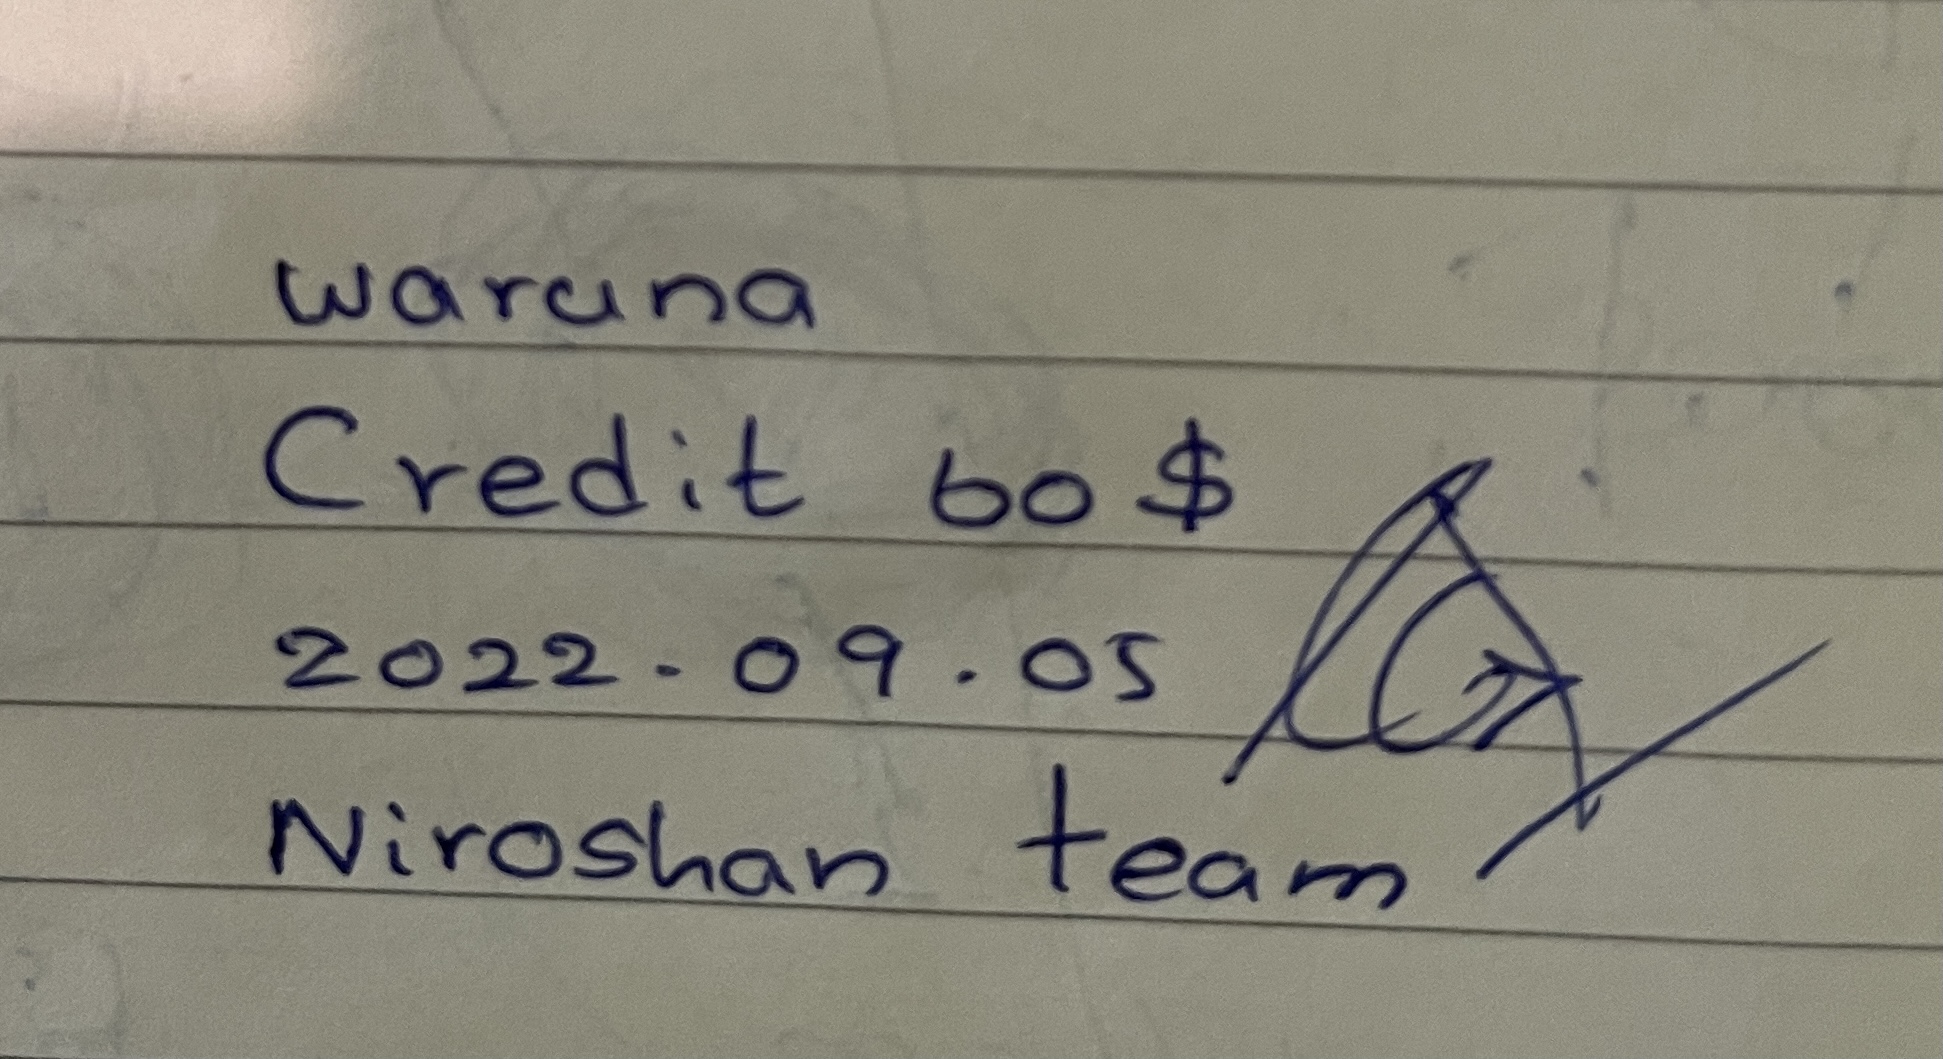 waruna
Credit 60 $
2022.09.05
Niroshan team